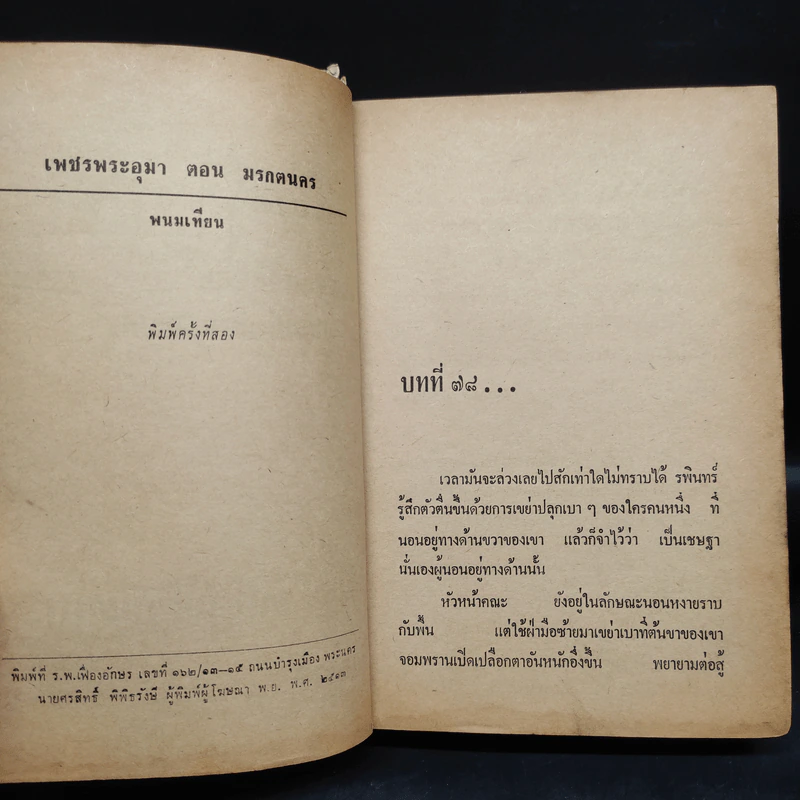 เพชรพระอุมา ตอน มรกตนคร
พนมเทียน
พิมพ์ครั้งที่สอง
พิมพ์ที่ ร.พ.เฟื่องอักษร เลขที่ ๑๖๒/๑๓—๑๕ ถนนบำรุงเมือง พระนคร
นายศรสิทธิ์ พิพิธรังษี ผู้พิมพ์ผู้โฆษณา พ.ย. พ.ศ. ๒๕๑๓
บทที่ ๗๘...
เวลามันจะล่วงเลยไปสักเท่าใดไม่ทราบได้ รพินทร์
รู้สึกตัวตื่นขึ้นด้วยการเขย่าปลุกเบา ๆ ของใครคนหนึ่ง ที่
นอนอยู่ทางด้านขวาของเขา แล้วก็จำไว้ว่า เป็นเชษฐา
นั่นเองผู้นอนอยู่ทางด้านนั้น
หัวหน้าคณะ ยังอยู่ในลักษณะนอนหงายราบ
กับพื้น แต่ใช้ฝ่ามือซ้ายมาเขย่าเบาที่ต้นขาของเขา
จอมพรานเปิดเปลือกตาอันหนักอึ้งขึ้น พยายามต่อสู้